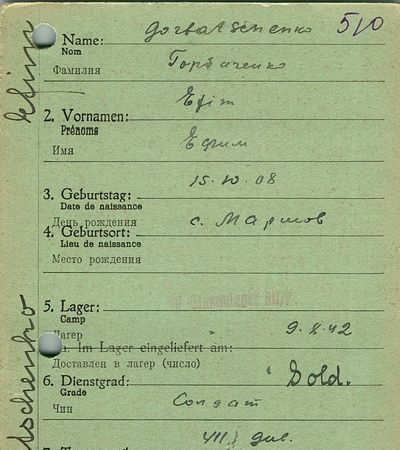 Gorbatschenko 510
Name:
Nom
Фамилия Горбаченко
Efim
2. Vornamen:
Prénoms
Имя Ефим
15.10.08
3. Geburtstag:
Date de naissance
День рождения
4. Geburtsort: с.
Lieu de naissance
Место рождения
5. Lager:
Camp
Лагер 9.8.42
a. Im Lager eingeliefert am:
Доставлен в лагер (число)
6. Dienstgrad: Sold.
Grade
Чин Солдат
Efim